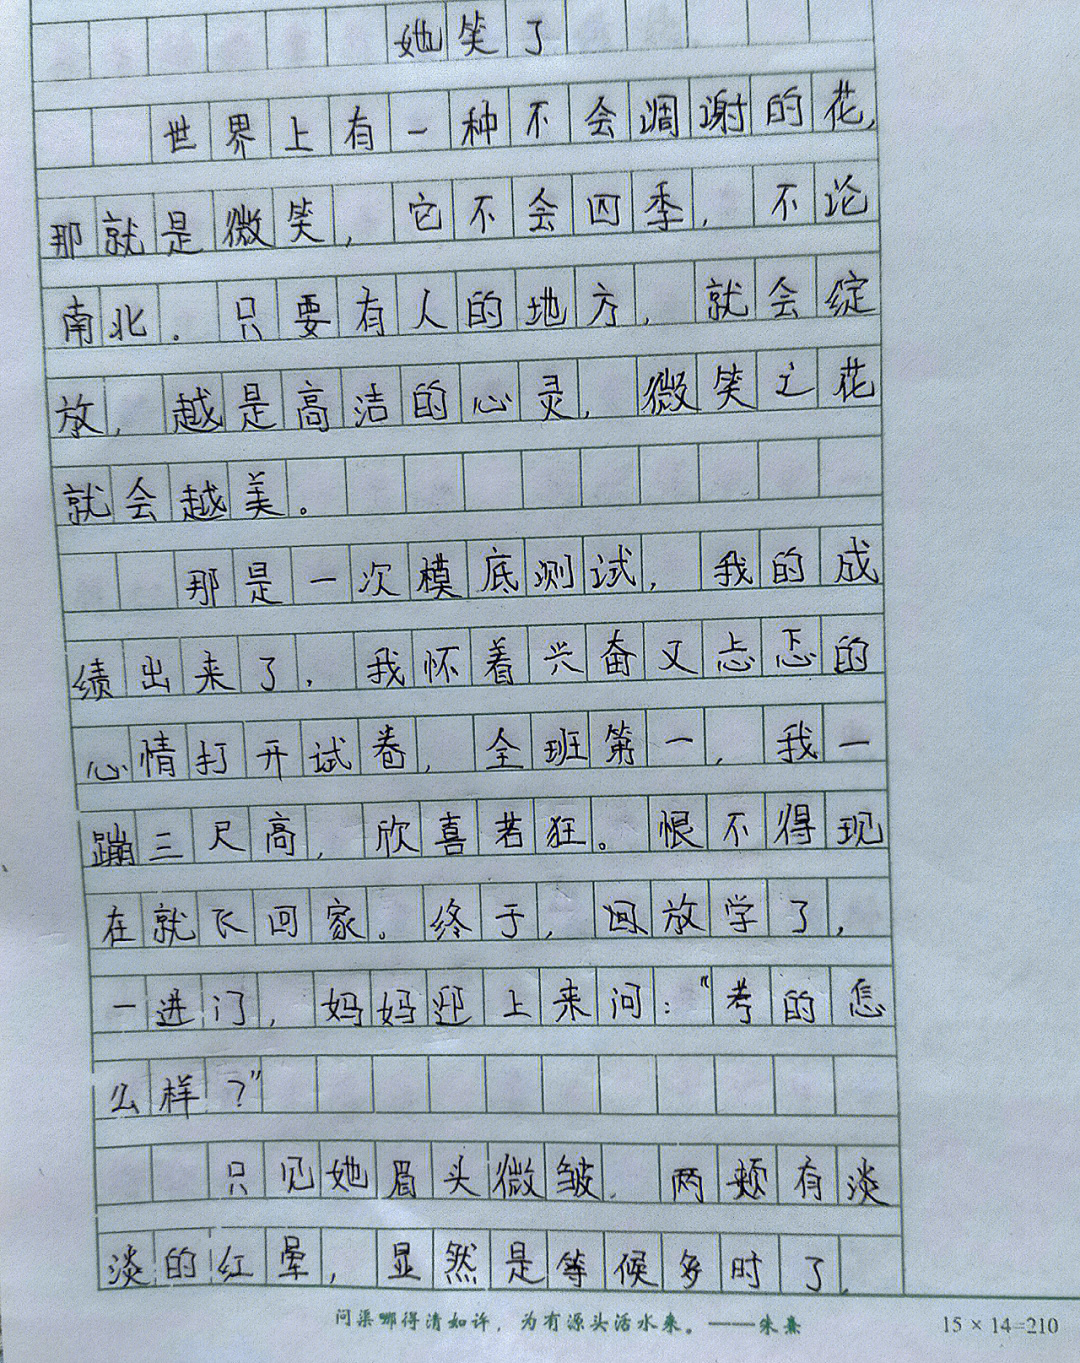 她笑了
世界上有一种不会凋谢的花,
那就是微笑,它不会四季,不论
南北.只要有人的地方,就会绽
放,越是高洁的心灵,微笑之花
就会越美。
那是一次模底测试,我的成
绩出来了.我怀着兴奋又忐忑的
心情打开试卷,全班第一,我一
蹦三尺高,欣喜若狂。恨不得现
在就飞回家。终于,回放学了,
一进门,妈妈迎上来问:“考的怎
么样?”
只见她眉头微皱.两颊有淡
淡的红晕,显然是等候多时了.
问渠哪得清如许,为有源头活水来。——朱熹
15 × 14=210